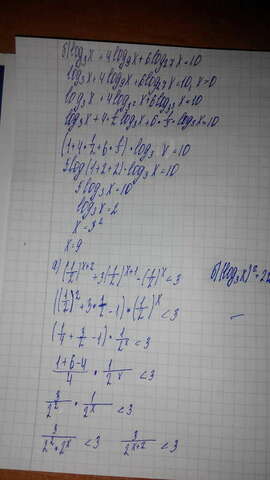 б) log₃x + 4log₉x + 6log₂₇x = 10
log₃x + 4log₉x + 6log₂₇x = 10, x>0
log₃x + 4log₃²x + 6log₃³x = 10
log₃x + 4·½log₃x + 6·⅓·log₃x = 10
(1+4·½+6·⅓)·log₃ x = 10
5log(1+2+2)·log₃x = 10
5log₃x = 10
log₃x = 2
x = 3²
x = 9
а) (½)ˣ⁺² + 3(½)ˣ⁺¹ - (½)ˣ < 3
((½)² + 3·½ - 1)·(½)ˣ < 3
(¼ + 3/2 - 1)·1/2ˣ < 3
(1+6-4)/4 · 1/2ˣ < 3
3/2² · 1/2ˣ < 3
3/(2²·2ˣ) < 3 3/2ˣ⁺² < 3
б) (log₃x)²